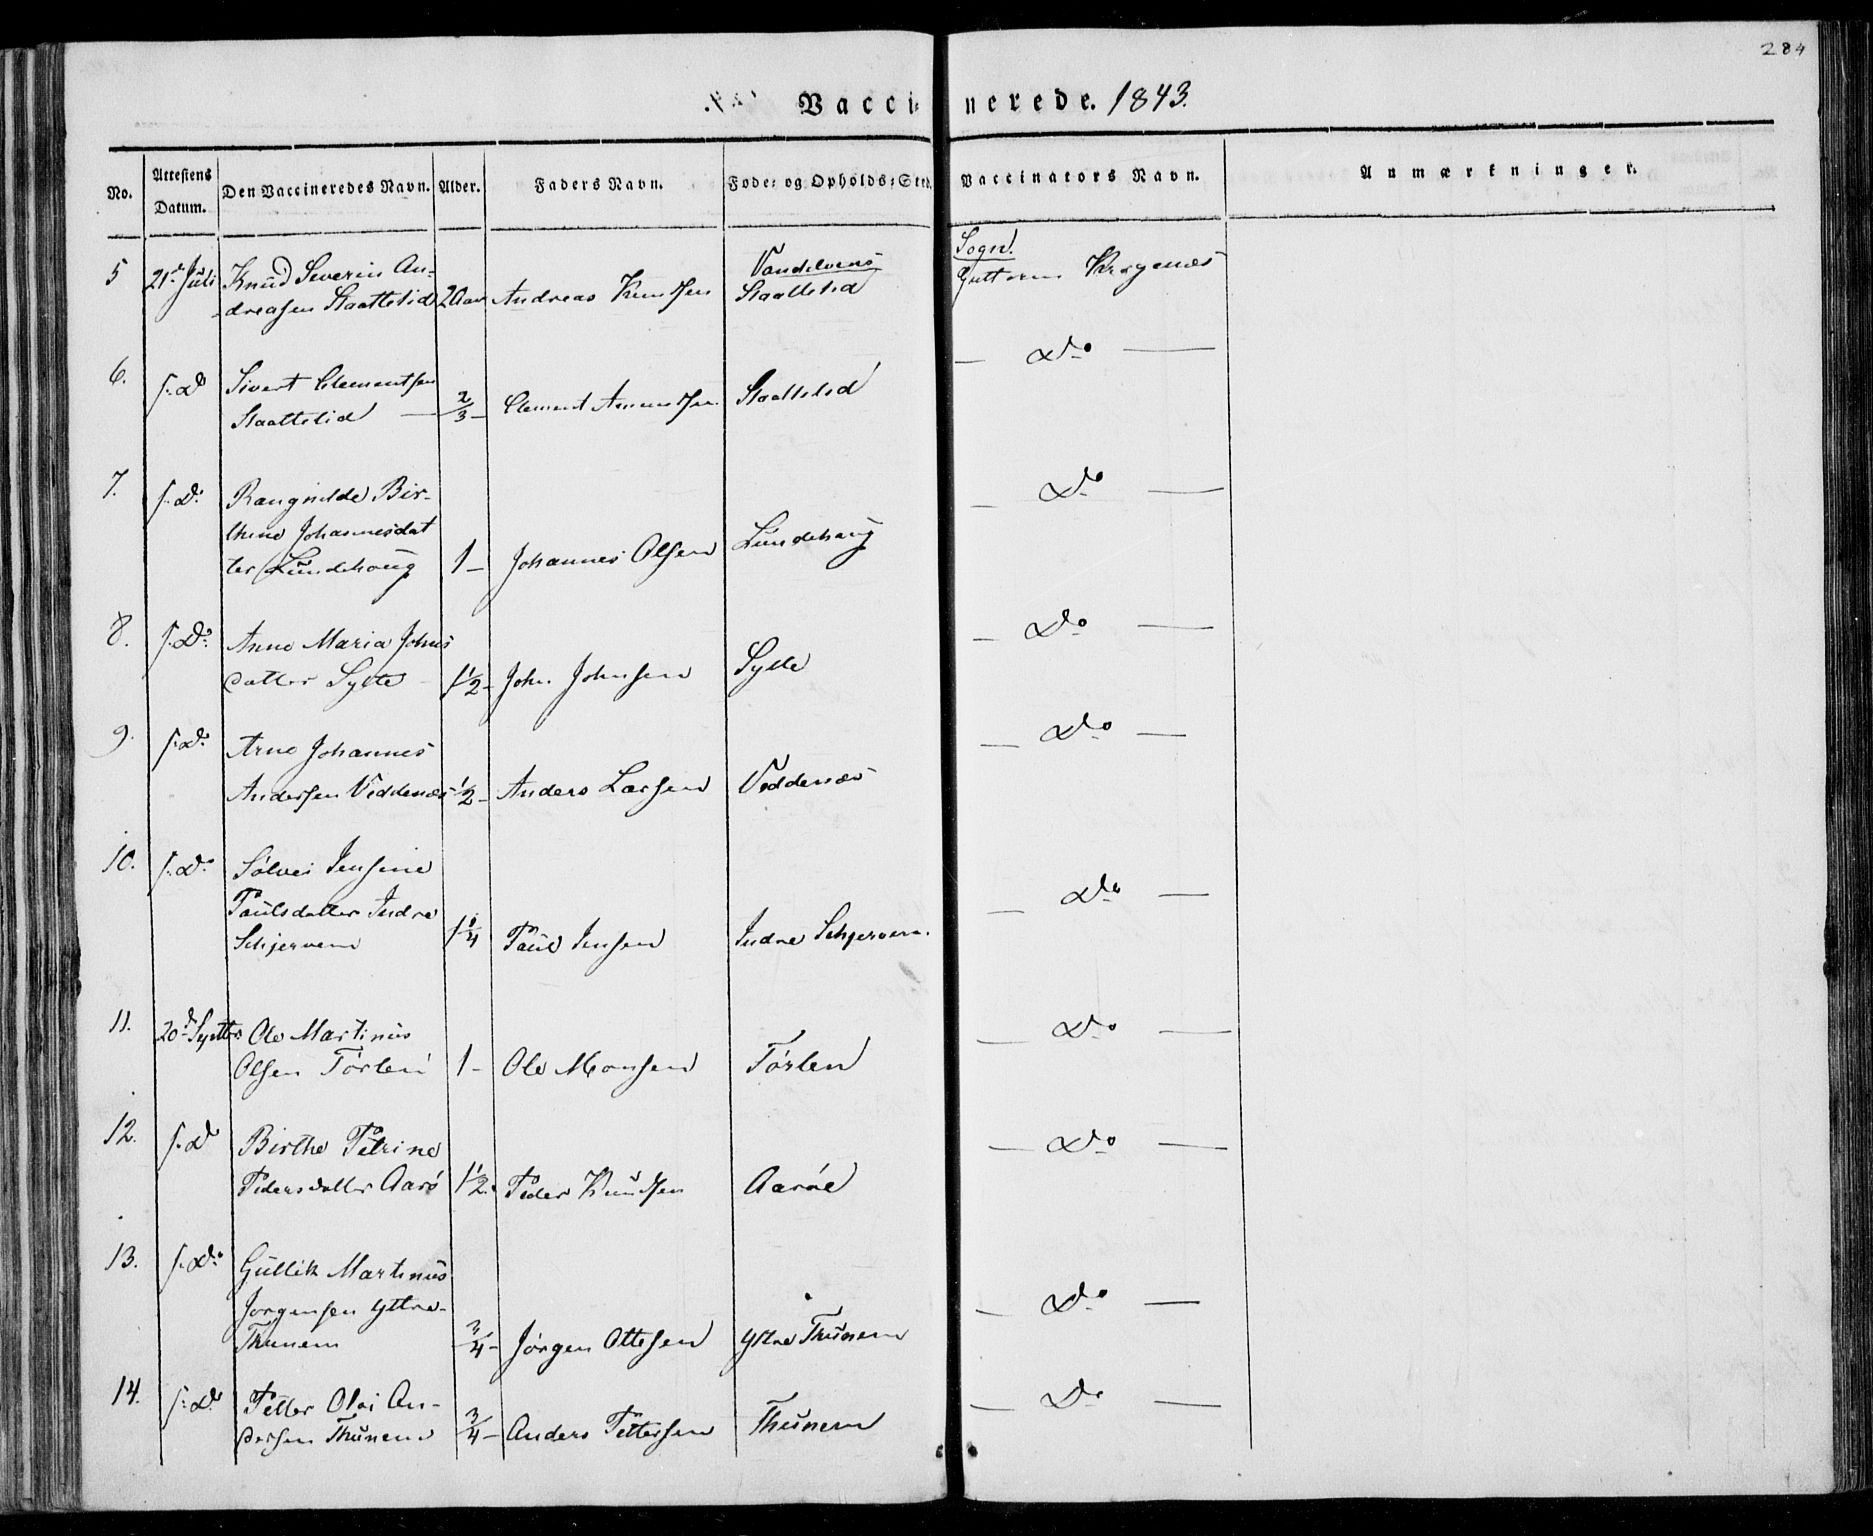 284
Vaccinerede. 1843.
No. Attestens Datum. Den Vaccineredes Navn. Alder. Faders Navn. Føde- og Opholds-Sted. Vaccinators Navn. Anmærkninger.
5 21de Juli Knud Severin An-
dreasen Staattelid 2 Aar Andreas Knudsen Vandelvens Sogn.
Staattelid Guttorm
6. s. D Sivert Clementsen
Staattelid — 2/3 – Clement Staattelid — Do —
7. s. D. Rangnilde Bir-
thine Johannesdat
ter Lundehoug 1 – Johannes Olsen Lundehoug — Do —
8. s. D. Anne Maria Johns
datter Sylte 1 1/2 – John Johnsen Sylte — Do —
9. s. D. Arne Johannes
Andersen Veddenæs 1/2 – Anders Larsen Veddenæs — Do —
10. s. D. Sølvei Jensine
Paulsdatter Indre
Schjervem 1 1/4 Paul Jensen Indre Schjervem. — Do —
11. 20de Septbr Ole Martinus
Olsen Tørlen 1 – Ole Monsen Tørlen — Do —
12. s. D Birthe Petrine
Pedersdatter Aarø 1 1/2. Peder Knudsen Aarøe — Do —
13. s. D. Gullik Martinus
Jørgensen Yttre-
Thunem 3/4 – Jørgen Ottesen Yttre Thunem — Do —
14. s. D. Petter Olai An-
dersen Thunem 3/4 – Anders Pettersen Thunem — Do —